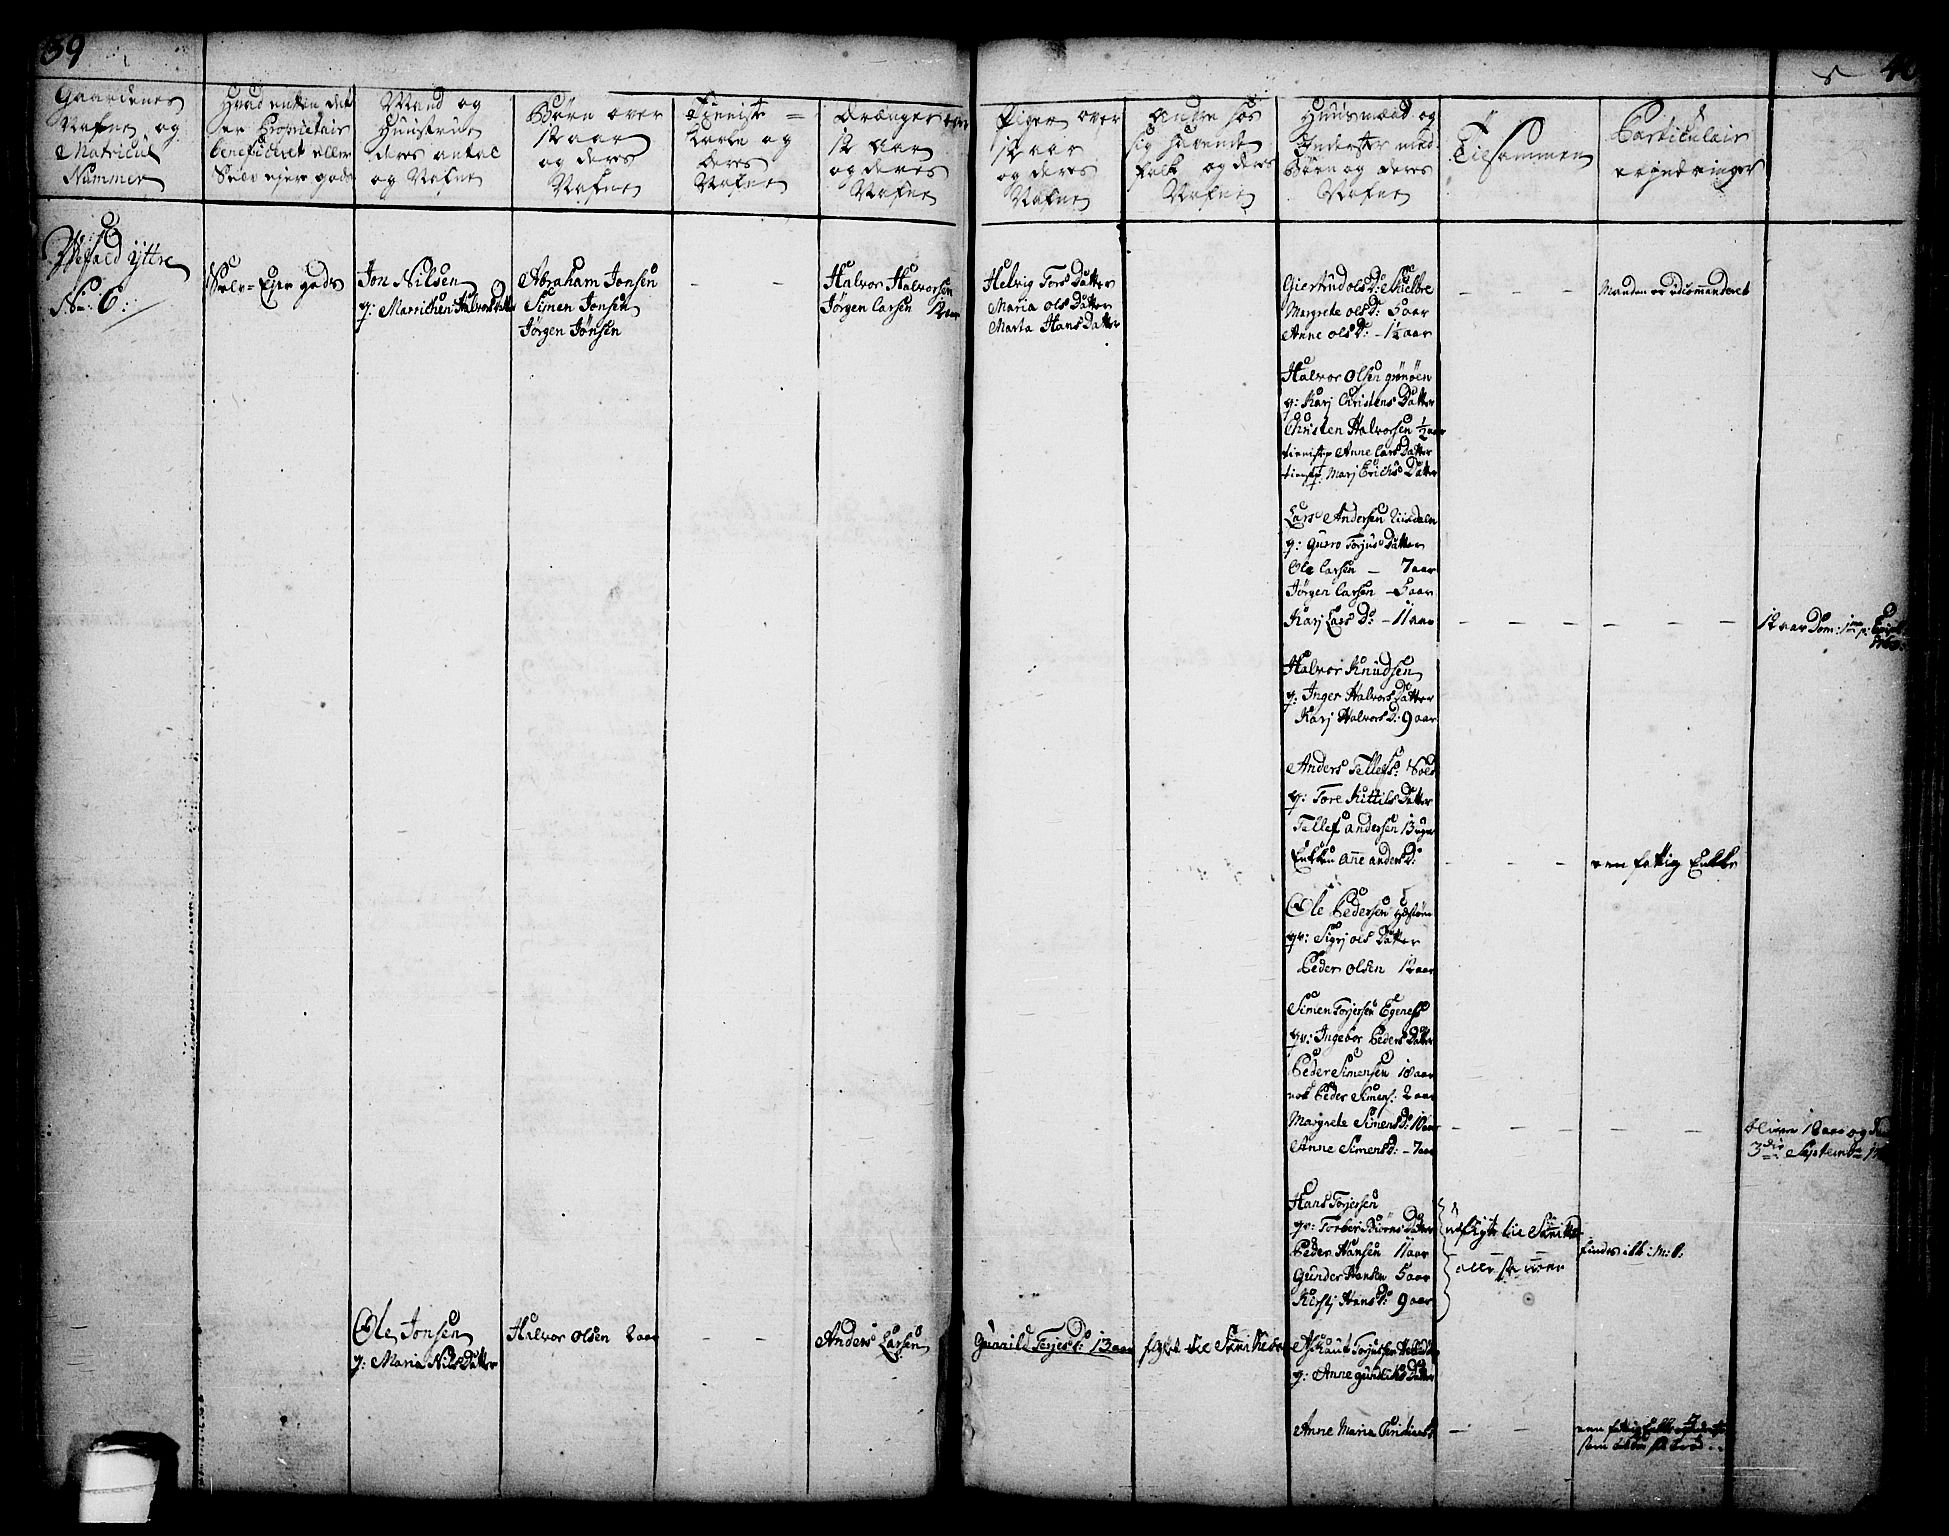 39
40
Gaardenes
Nafne og
Matricul
Nummer
Hvad enten det
er Proprietair
beneficeret eller
Selv ejer gods
Mand og
Hüüstrüe
deres antal
og Nafne
Börn over
12 aar
og deres
Nafne
Tieniste =
Karle og
deres
Nafne
Drænger over
12 aar
og deres
Nafne
Piger over
12 aar
og deres
Nafne
Andre hos
sig havende
folk og deres
Nafne
Huusmænd og
Inderster med
Börn og deres
Nafne
Tilsammen
Particulair
erindringer
Ytre
No: 6:
Selv = Ejer gods
Jon Nilsen
q: Marrithen Halvors datter
Abraham Jonsen
Simen Jonsen
Jørgen Jonsen
- -
Halvor Halvorsen
Jørgen Larsen 12 aar
Helvig Tors Datter
Maria ols Datter
Marta Hans Datter
Giertrud ols D:
Margrete ols D: 5 aar
Anne ols D: - 1½ aar
- - - Manden er udcommanderet
Halvor Olsen grønøen
q: Karj Christens Datter
Christen Halvorsen ½ aar
tienistep Anne Lars Datter
tienstp: Marj Erichs Datter
Lars Andersen
q: Guro Torjus Datter
Ole Larsen - 7 aar
Jørgen Larsen - 5 aar
Karj Lars D: - 11 aar
- - - - - - 12 aar Dom: 1ma p: Epiph
Halvor Knudsen
q: Inger Halvors Datter
Karj Halvors D: 9 aar
Anders Tellefs:
q: Tore Kittils Datter
Tellef andersen 13 uger
Enken anne anders D:
- - - een fattig Enke
Ole Pedersen
qv: Sigrj ols Datter
Peder Olsen 12 aar
Simen Torjersen Egenes
qv: Ingebor Peders Datter
Peder Simensen 18 aar
nok Peder Simens: 2 aar
Margrete Simens D: 10 aar
Anne Simens D: - 7 aar
- - - - - -
bliver 18 aar og
3die September
Hans Torjersen
qv: Torber Biörns Datter
Peder Hansen 11 aar
Gunder Hansen 5 aar
Kirstj Hans D: 9 aar
udfløgt til
findes ibl: M: S:
Ole Jonsen
q: Maria Nils Datter
Halvor Olsen 2 aar
- -
Anders Larsen
Gunnild Torjes D: 13 aar
fløt til
Aslaut Torjussen
q: Anne gundliks Datter
Anne Maria Christians D
- -
een fattig